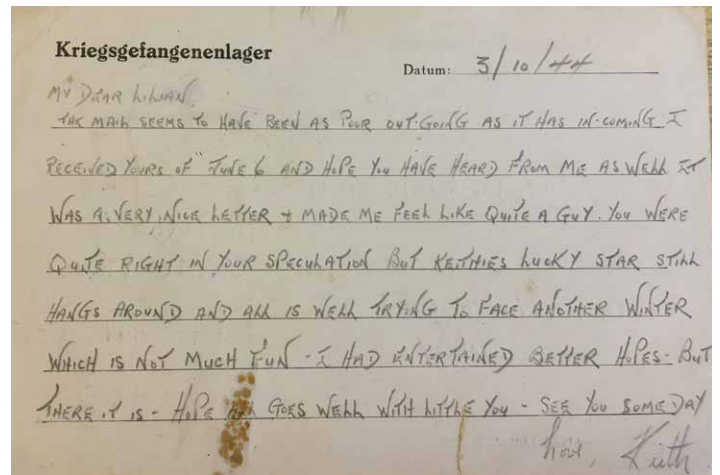 Kriegsgefangenenlager
Datum: 3/10/44
MY DEAR LILIAN
THE MAIL SEEMS TO HAVE BEEN AS POOR OUT-GOING AS IT HAS IN-COMING I
RECEIVED YOURS OF JUNE 6 AND HOPE YOU HAVE HEARD FROM ME AS WELL IT
WAS A VERY NICE LETTER + MADE ME FEEL LIKE QUITE A GUY. YOU WERE
QUITE RIGHT IN YOUR SPECULATION BUT KEITHIES LUCKY STAR STILL
HANGS AROUND AND ALL IS WELL TRYING TO FACE ANOTHER WINTER
WHICH IS NOT MUCH FUN - I HAD ENTERTAINED BETTER HOPES - BUT
THERE IT IS - HOPE ALL GOES WELL WITH LITTLE YOU - SEE YOU SOME DAY
Love, Keith